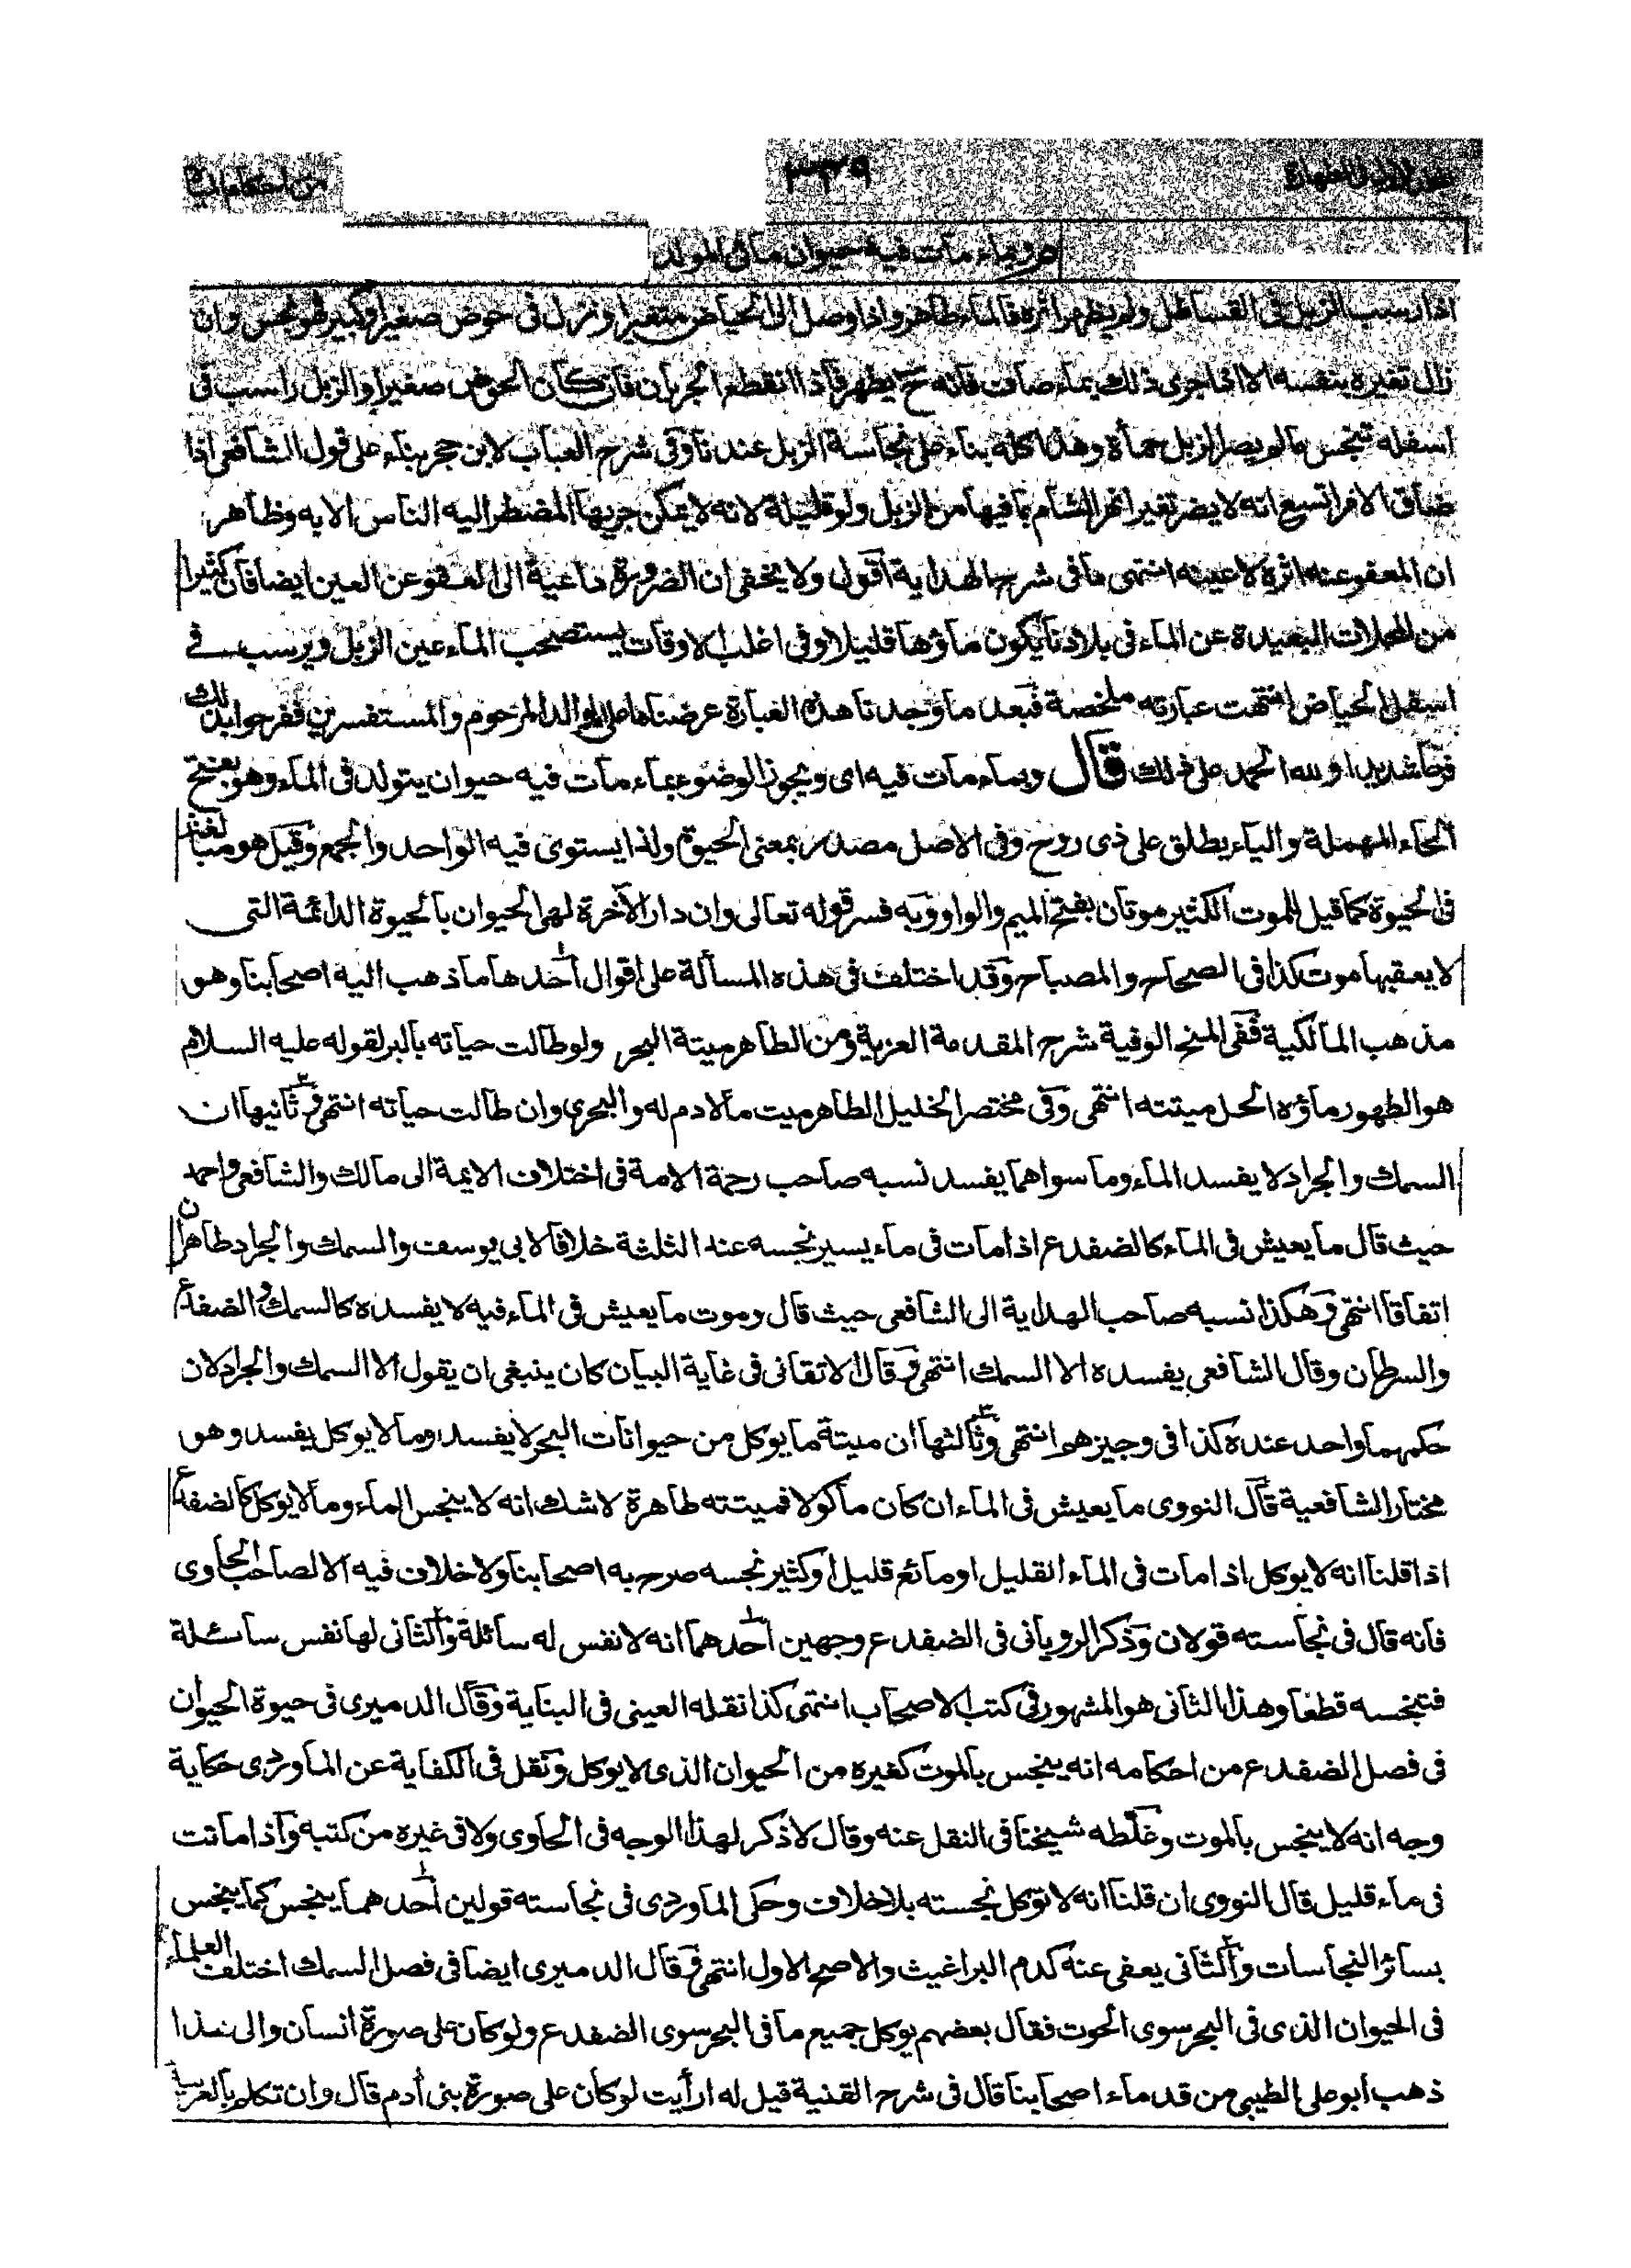 ٣٣٩
وبماء مات فيه حيوان مائى المولد
اذا رسب الزبل فى القساطل ولم يظهر اثره فالماء طاهر واذا وصل الى الحياض متغيرا ونزل فى حوض صغير او كبير فهو نجس وان
زال تغيره بنفسه الا اذا جرى ذلك بماء صاف فانه ح يطهر فاذا انقطع الجريان فان كان الحوض صغيرا والزبل راسب فى
اسفله تنجس مالم يصر الزبل حمأة وهذا كله بناء على نجاسة الزبل عندنا وفى شرح العباب لابن حجر بناء على قول الشافعى اذا
ضاق الامر اتسع انه لا يضر تغير انهر الشام بما فيها من الزبل ولو قليلة لانه لا يمكن جريها المضطر اليه الناس الا به وظاهر
ان المعفو عنه اثره لا عينه انتهى ما فى شرح الهداية اقول ولا يخفى ان الضرورة داعية الى العفو عن العين ايضا فان كثيرا
من المحلات البعيدة عن الماء فى بلادنا يكون ماؤها قليلا وفى اغلب الاوقات يستصحب الماء عين الزبل ويرسب فى
اسفل الحياض انتهت عبارته ملخصة فبعد ما وجدنا هذه العبارة عرضناها على الوالد المرحوم والمستفسرين ففرحوا بذلك
فرحا شديدا ولله الحمد على ذلك قال وبماء مات فيه اى ويجوز الوضوء بماء مات فيه حيوان يتولد فى الماء وهو بفتح
الحاء المهملة والياء يطلق على ذى روح وفى الاصل مصدر بمعنى الحيوة ولذا يستوى فيه الواحد والجمع وقيل هو مبالغة
فى الحيوة كما قيل للموت الكثير موتان بفتح الميم والواو وبه فسر قوله تعالى وان دار الآخرة لهى الحيوان بالحيوة الدائمة التى
لا يعقبها موت كذا فى الصحاح والمصباح وقد اختلف فى هذه المسألة على اقوال احدها ما ذهب اليه اصحابنا وهو
مذهب المالكية ففى المنح الوفية شرح المقدمة العزية ومن الطاهر ميتة البحر ولو طالت حياته بالبر لقوله عليه السلام
هو الطهور ماؤه الحل ميتته انتهى وفى مختصر الخليل الطاهر ميت مالا دم له والبحرى وان طالت حياته انتهى وثانيها ان
السمك والجراد لا يفسد الماء وما سواهما يفسد نسبه صاحب رحمة الامة فى اختلاف الايمة الى مالك والشافعى واحمد
حيث قال ما يعيش فى الماء كالضفدع اذا مات فى ماء يسير نجسه عند الثلثة خلافا لابى يوسف والسمك والجراد طاهران
اتفاقا انتهى وهكذا نسبه صاحب الهداية الى الشافعى حيث قال وموت ما يعيش فى الماء فيه لا يفسده كالسمك والضفدع
والسرطان وقال الشافعى يفسده الا السمك انتهى وقال الاتقانى فى غاية البيان كان ينبغى ان يقول الا السمك والجراد لان
حكمهما واحد عنده كذا فى وجيزهم انتهى وثالثها ان ميتة ما يوكل من حيوانات البحر لا يفسد وما لا يوكل يفسد وهو
مختار الشافعية قال النووى ما يعيش فى الماء ان كان ماكولا فميتته طاهرة لا شك انه لا ينجس الماء وما لا يوكل كالضفدع
اذا قلنا انه لا يوكل اذا مات فى الماء القليل او مائع قليل او كثير نجسه صرح به اصحابنا ولا خلاف فيه الا لصاحب الحاوى
فانه قال فى نجاسته قولان وذكر الرويانى فى الضفدع وجهين احدهما انه لا نفس له سائلة والثانى لها نفس سائلة
فتنجسه قطعا وهذا الثانى هو المشهور فى كتب الاصحاب انتهى كذا نقله العينى فى البناية وقال الدميرى فى حيوة الحيوان
فى فصل الضفدع من احكامه انه ينجس بالموت كغيره من الحيوان الذى لا يوكل ونقل فى الكفاية عن الماوردى حكاية
وجه انه لا ينجس بالموت وغلطه شيخنا فى النقل عنه وقال لا ذكر لهذا الوجه فى الحاوى ولا فى غيره من كتبه واذا ماتت
فى ماء قليل قال النووى ان قلنا انه لا توكل نجسته بلا خلاف وحكى الماوردى فى نجاسته قولين احدهما ينجس كما ينجس
بسائر النجاسات والثانى يعفى عنه كدم البراغيث والاصح الاول انتهى وقال الدميرى ايضا فى فصل السمك اختلف العلماء
فى الحيوان الذى فى البحر سوى الحوت فقال بعضهم يوكل جميع ما فى البحر سوى الضفدع ولو كان على صورة انسان والى هذا
ذهب ابو على الطيبى من قدماء اصحابنا قال فى شرح القنية قيل له ارأيت لو كان على صورة بنى أدم قال وان تكلم بالعربية